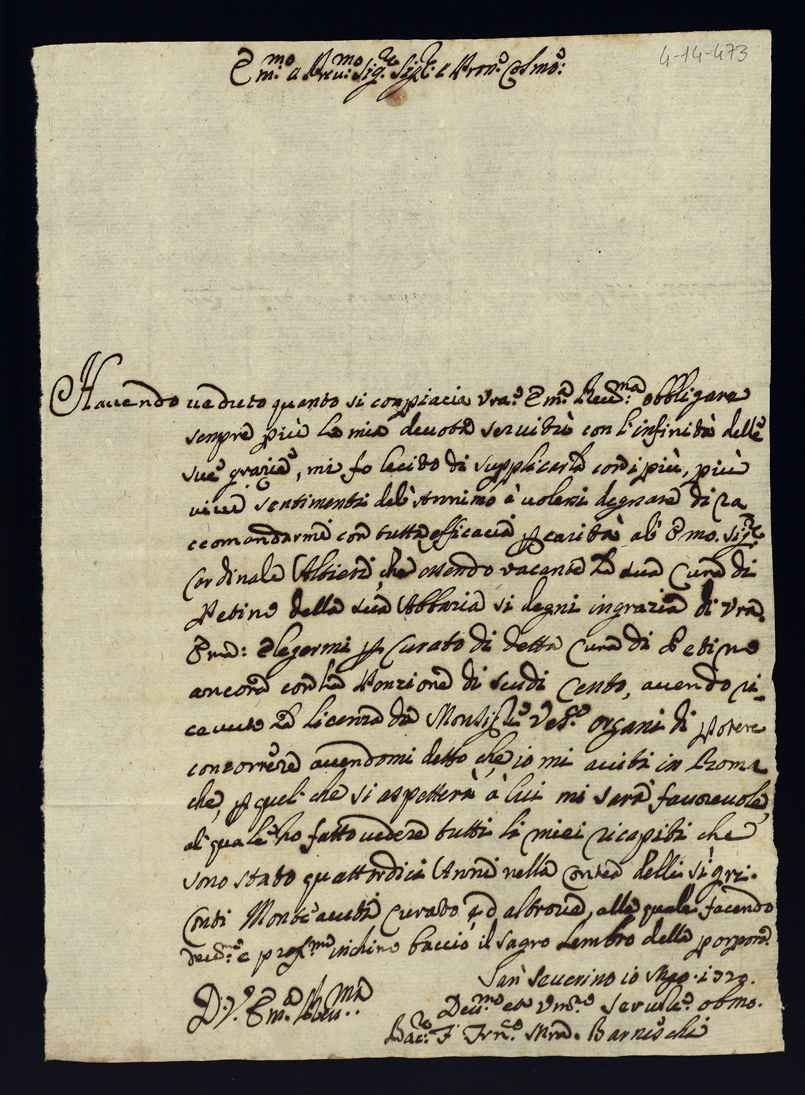 4-14-473
Em.mo e Reu.mo Sig.re Sig.re e Pron.e Colmo:
Hauendo ueduto quanto si conpiacia Vra. Em.a Reu.ma obbligare
senpre più la mia deuota seruitù con l'infinità delle
sue grazie, mi fo lecito di supplicarla con i più, più
viui sentimenti del'Annimo à uolersi degnare di ra
ccomandarmi con tutta efficacia p carità al' Emo. sig.re
Cardinale Albieri, che essendo vacante la sua Cura di
Petino della sua Abbazia si degni in grazia di Vra.
Ema: elegermi p Curato di detta Cura di Petino
ancora con la Ponzione di scudi Cento, auendo ri-
ceuuto la licenza da Monsig.re Ves.o organi di potere
concorrere auendomi detto che io mi auiti in Roma
che p quel che si aspetterà à lui mi sarà fauoreuole,
al quale ho fatto uedere tutti li miei ricapiti che
sono stato quattordici Anni nella Contea delli sigri.
Conti Monte uecchi Curato, ed altroue, alla quale facendo
deu.me e prof.me inchine baccio il sagro Lembro della porpora.
San Seuerino 10 Mgo. 1729.
D. V. Em.a Reu.ma
Deu.mo et Vm.mo Seruite. obmo.
Bac.re F. Frn.co Mra. Barnischi